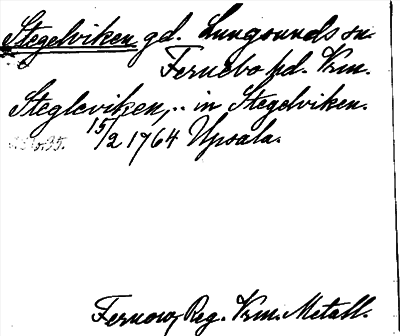 Stegelviken gd. Lungsunds sn.
Fernebo hd. Vrm.
Stegleviken, .. in Stegelviken.
15/2 1764 Upsala.
Fernow, Reg. Vrm. Metall.